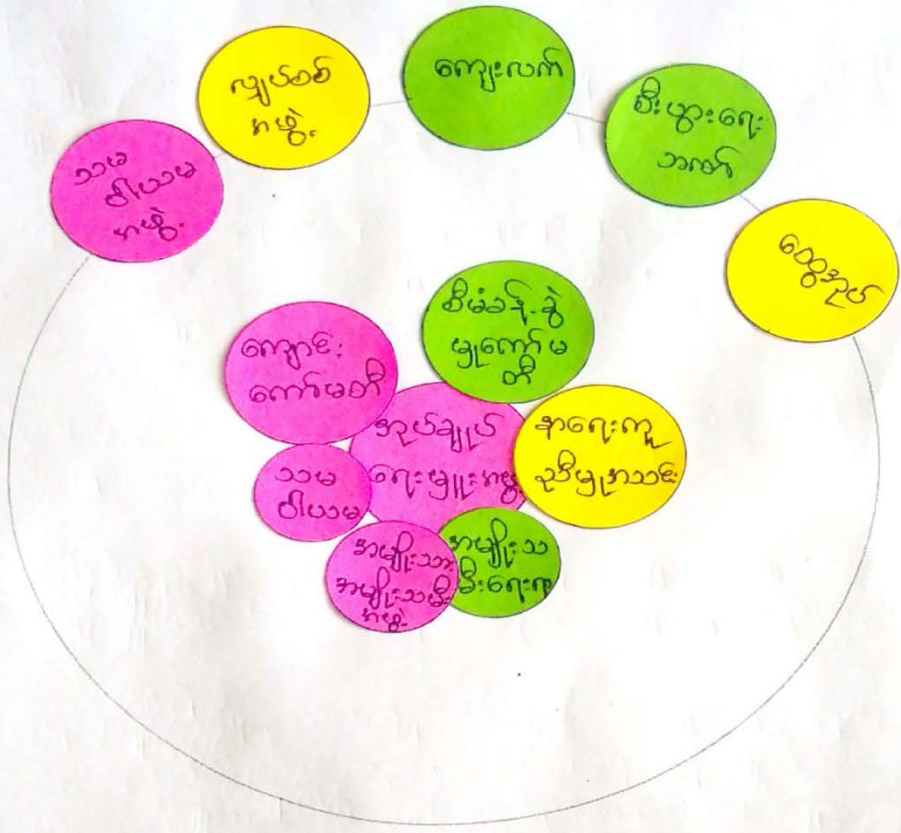 သမ
ဝါယမ
အဖွဲ့
လျှပ်စစ်
အဖွဲ့
ကျေးလက်
စီးပွားရေး
ဘဏ်
ထွေအုပ်
စီမံခန့်ခွဲ
မှုကော်မ
တီ
ကျောင်း
ကော်မတီ
အုပ်ချုပ်
ရေးမှူးအဖွဲ့
နာရေးကူ
ညီမှုအသင်း
သမ
ဝါယမ
အမျိုးသား
အမျိုးသမီး
အဖွဲ့
အမျိုးသ
မီးရေးရာ